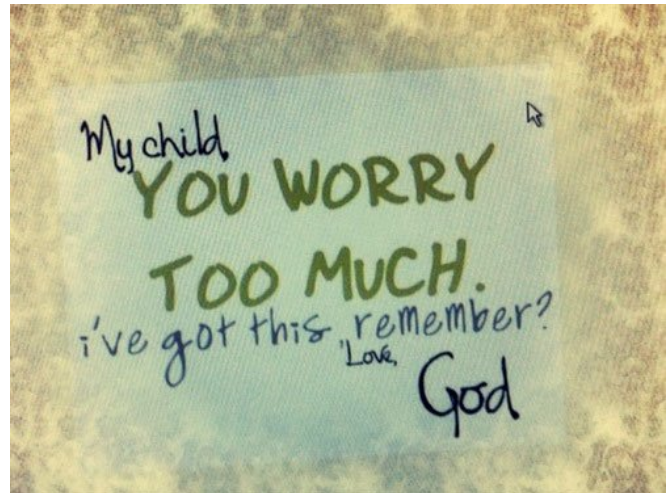 My child,
YOU WORRY
TOO MUCH.
i've got this, remember?
Love,
God